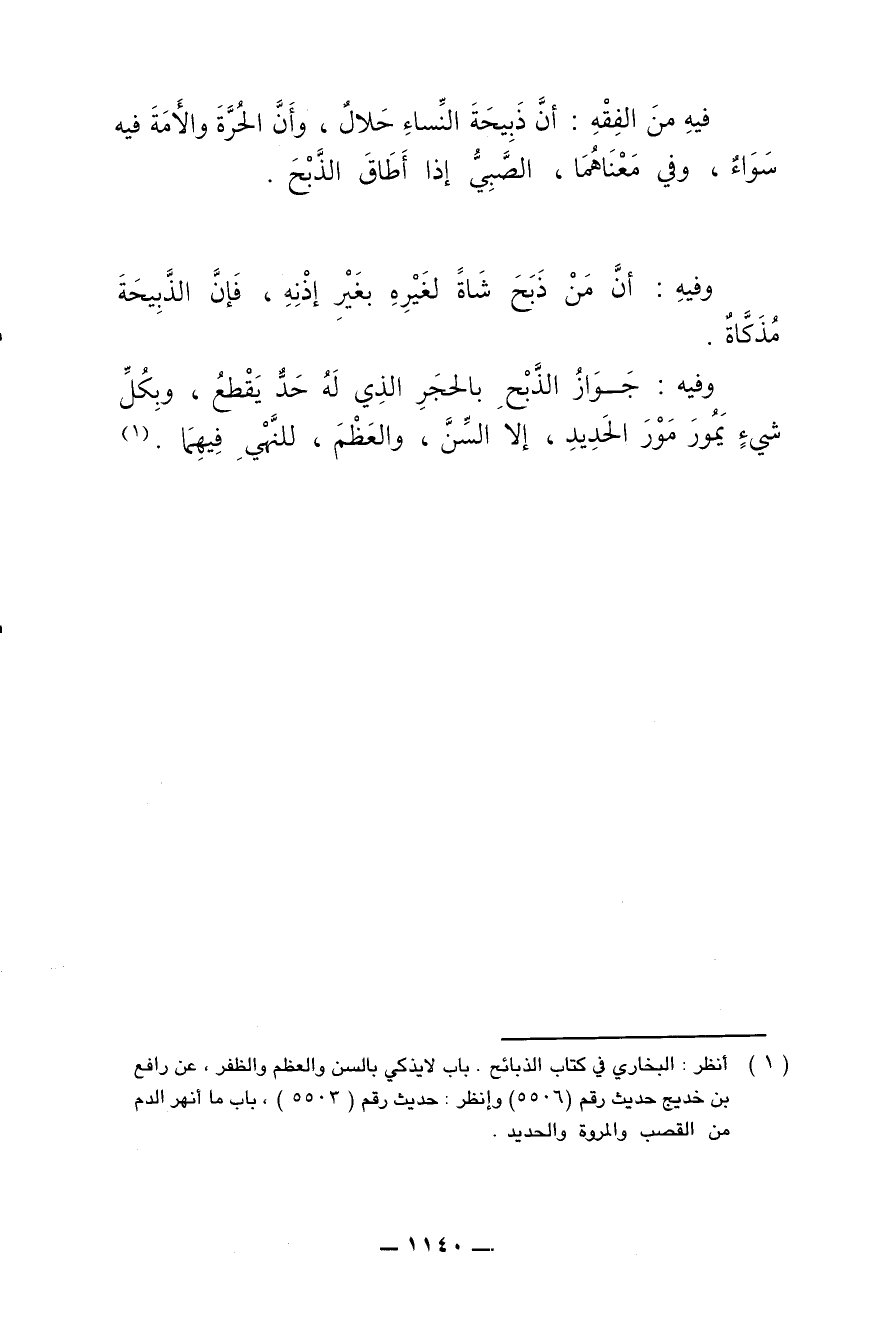 فيهِ منَ الفِقْهِ : أنَّ ذَبِيحَةَ النِّساءِ حَلالٌ ، وأَنَّ الحُرَّةَ والأَمَةَ فيه
سَوَاءٌ ، وفي مَعْنَاهُمَا ، الصَّبِيُّ إذا أَطَاقَ الذَّبْحَ .
وفيهِ : أنَّ مَنْ ذَبَحَ شَاةً لغَيْرِهِ بغَيْرِ إذْنِهِ ، فَإنَّ الذَّبِيحَةَ
مُذَكَّاةٌ .
وفيه : جَـوَازُ الذَّبْحِ بالحجَرِ الذِي لَهُ حَدٌّ يَقْطعُ ، وبِكُلِّ
شيءٍ يَمُورَ مَوْرَ الحَدِيدِ ، إلا السِّنَّ ، والعَظْمَ ، للنَّهْيِ فِيهِمَا . (١)
( ١ ) أنظر : البخاري في كتاب الذبائح . باب لايذكي بالسن والعظم والظفر ، عن رافع
بن خديج حديث رقم (٥٥٠٦) وإنظر : حديث رقم ( ٥٥٠٣ ) ، باب ما أنهر الدم
من القصب والمروة والحديد .
— ١١٤٠ —